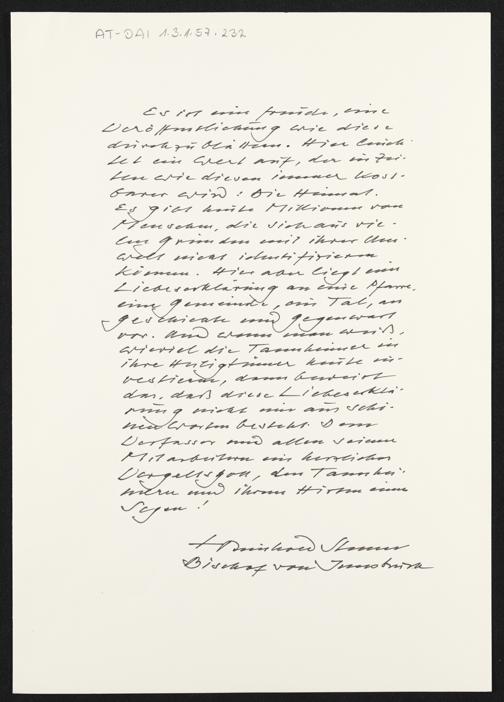 AT-DAI 1.3.1.57.232
Es ist eine Freude, eine
Veröffentlichung wie diese
durchzublättern. Hier leuch-
tet ein Wert auf, der in Zei-
ten wie diesen immer kost-
barer wird: Die Heimat.
Es gibt heute Millionen von
Menschen, die sich aus vie-
len Gründen mit ihrer Um-
welt nicht identifizieren
können. Hier aber liegt eine
Liebeserklärung an eine Pfarre,
eine Gemeinde, ein Tal, an
Geschichte und Gegenwart
vor. Und wenn man weiß,
wieviel die Tannheimer in
ihre Heiligtümer heute in-
vestieren, dann beweist
das, daß diese Liebeserklä-
rung nicht nur aus schö-
nen Worten besteht. Dem
Verfasser und allen seinen
Mitarbeitern ein herzliches
Vergeltsgott, den Tannhei-
mern und ihrem Hirten einen
Segen!
+ Reinhold Stecher
Bischof von Innsbruck